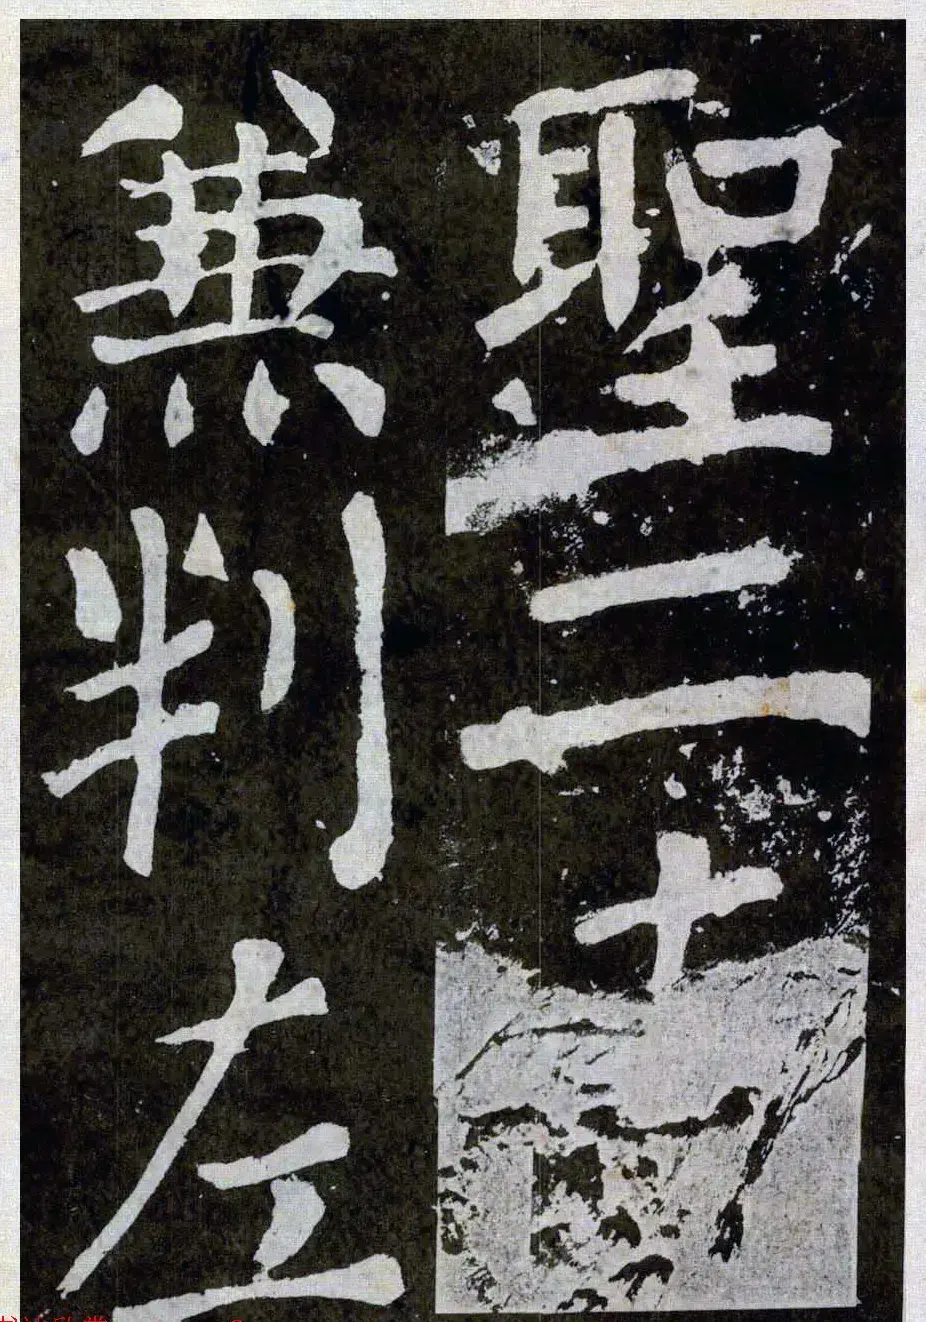 聖二十
兼判左